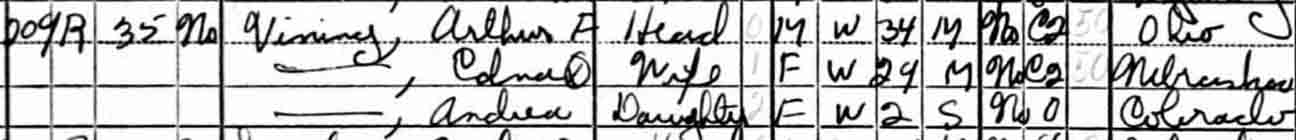 209 R 35 No Vining, Arthur F Head 0 M W 34 M No C2 50 Ohio
——, Edna Ⓧ Wife 1 F W 24 M No C2 50 Nebraska
——, Andrea Daughter 2 F W 2 S No 0 Colorado